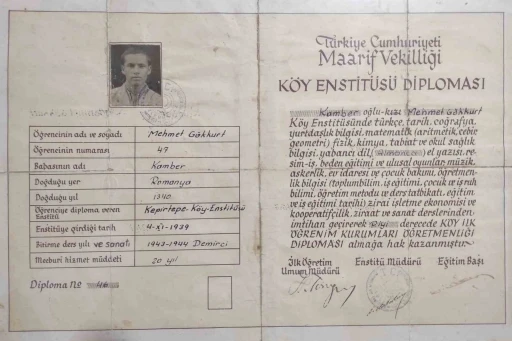 Öğrencinin adı ve soyadı Mehmet Gökkurt
Öğrencinin numarası 47
Babasının adı Kamber
Doğduğu yer Romanya
Doğduğu yıl 1340
Öğrenciye diploma veren Enstitü Kepirtepe Köy Enstitüsü
Enstitüye girdiği tarih 4-XI-1939
Bitirme ders yılı ve sanatı 1943-1944 Demirci
Mecburi hizmet müddeti 20 yıl
Diploma №
Türkiye Cumhuriyeti
Maarif Vekilliği
KÖY ENSTİTÜSÜ DİPLOMASI
Kamber oğlu-kızı Mehmet Gökkurt
Köy Enstitüsünde türkçe, tarih, coğrafya,
yurddaşlık bilgisi, matematik (aritmetik, cebir,
geometri) fizik, kimya, tabiat ve okul sağlık
bilgisi, yabancı dil, el yazısı, re-
sim-iş, beden eğitimi ve ulusal oyunlar, müzik,
askerlik, ev idaresi ve çocuk bakımı, öğretmen-
lik bilgisi (toplumbilim, iş eğitimi, çocuk ve iş ruh
bilimi, öğretim metodu ve ders tatbikatı, eğitim
ve iş eğitimi tarihi) zirai işletme ekonomisi ve
kooperatifçilik, ziraat ve sanat derslerinden
imtihan geçirerek derecede KÖY İLK
ÖĞRENİM KURUMLARI ÖĞRETMENLİĞİ
DİPLOMASI almağa hak kazanmıştır.
İlk Öğretim Enstitü Müdürü Eğitim Başı
Umum Müdürü